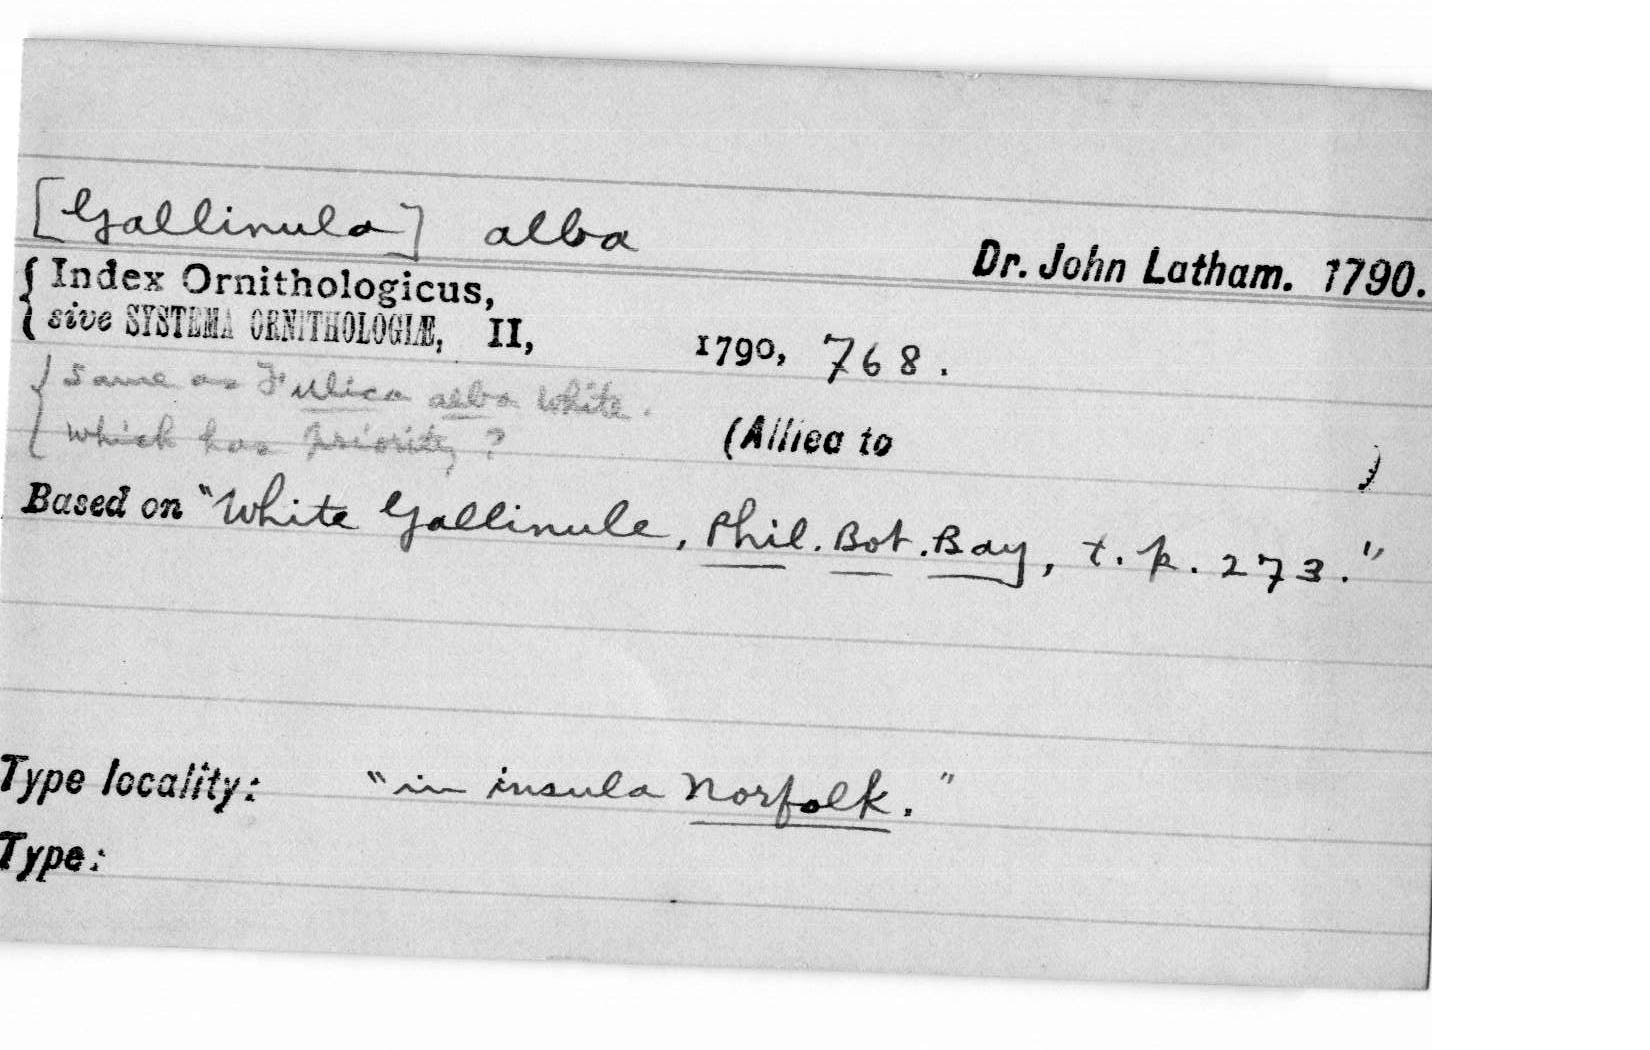 [Gallinula] alba
Dr. John Latham. 1790.
{ Index Ornithologicus,
sive SYSTEMA ORNITHOLOGIÆ, II, 1790, 768.
{ Same as Fulica alba White.
which has priority?
(Allied to )
Based on "White Gallinule, Phil. Bot. Bay, t. p. 273."
Type locality: "in insula Norfolk."
Type: